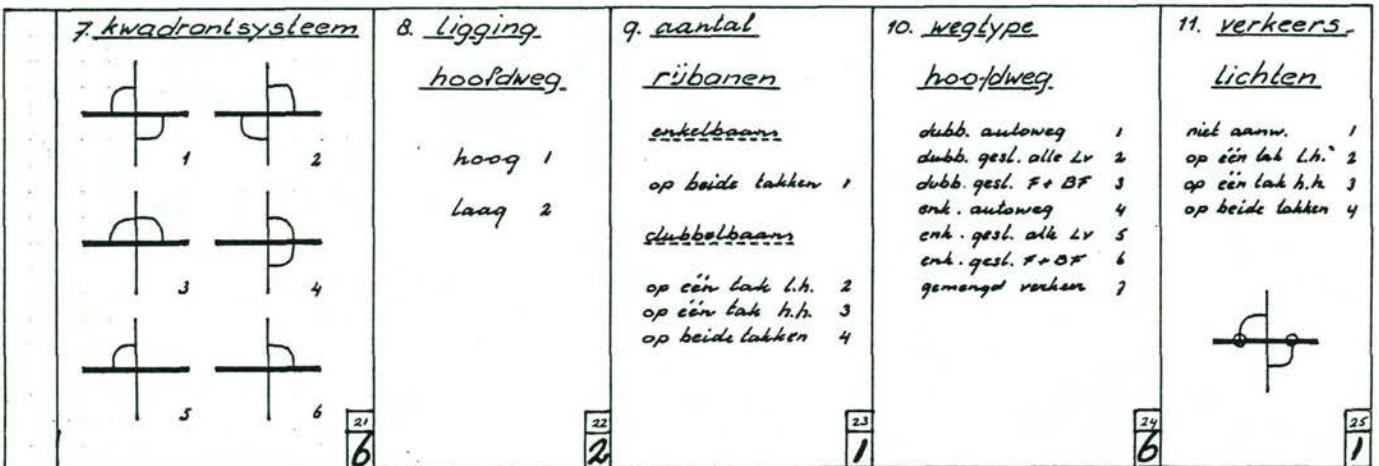 7. kwadrantsysteem
1 2
3 4
5 6
21
6
8. ligging
hoofdweg
hoog 1
laag 2
22
2
9. aantal
rijbanen
enkelbaans
op beide takken 1
dubbelbaans
op één tak l.h. 2
op één tak h.h. 3
op beide takken 4
23
1
10. wegtype
hoofdweg
dubb. autoweg 1
dubb. gesl. alle Lv 2
dubb. gesl. F + BF 3
enk. autoweg 4
enk. gesl. alle Lv 5
enk. gesl. F + BF 6
gemengd verkeer 7
24
6
11. verkeers-
lichten
niet aanw. 1
op één tak l.h. 2
op één tak h.h 3
op beide takken 4
25
1